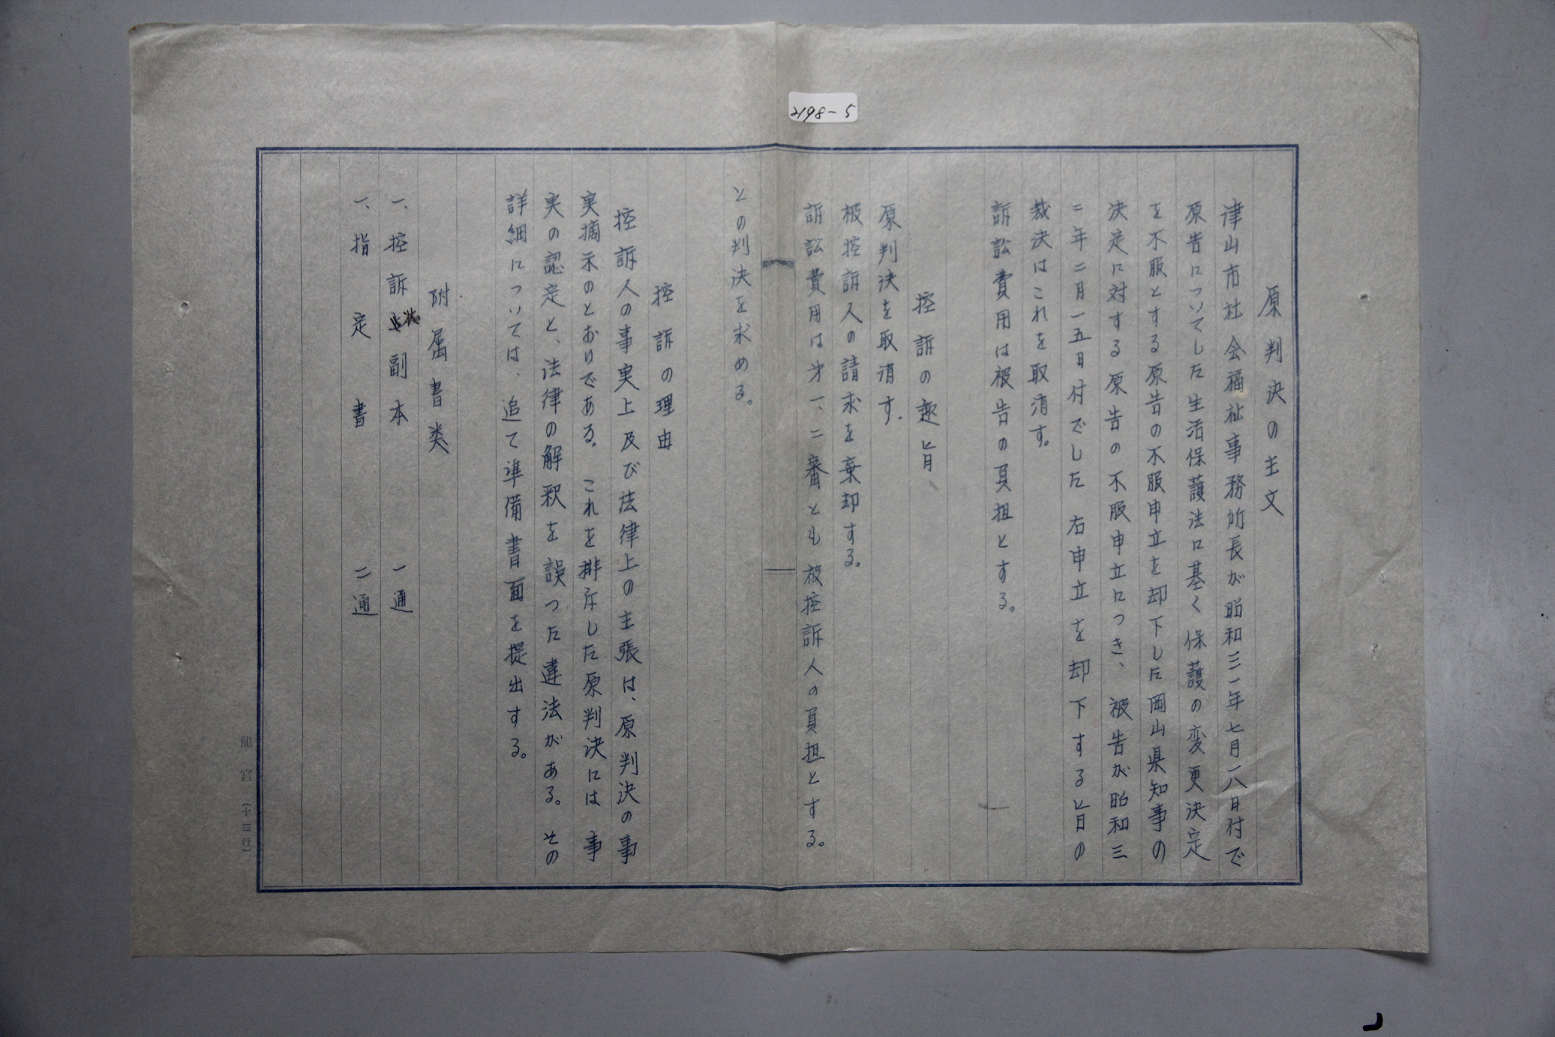 2198-5
原判決の主文
津山市社会福祉事務所長が昭和三一年七月一八日付で
原告についてした生活保護法に基く保護の変更決定
を不服とする原告の不服申立を却下した岡山県知事の
決定に対する原告の不服申立につき、被告が昭和三
二年二月一五日付でした右申立を却下する旨の
裁決はこれを取消す。
訴訟費用は被告の負担とする。
控訴の趣旨
原判決を取消す.
被控訴人の請求を棄却する。
訴訟費用は第一、二審とも被控訴人の負担とする。
との判決を求める。
控訴の理由
控訴人の事実上及び法律上の主張は、原判決の事
実摘示のとおりである。これを排斥した原判決には事
実の認定と、法律の解釈を誤つた違法がある。その
詳細については、追て準備書面を提出する。
附属書類
一、控訴状副本 一通
一、指定書 二通